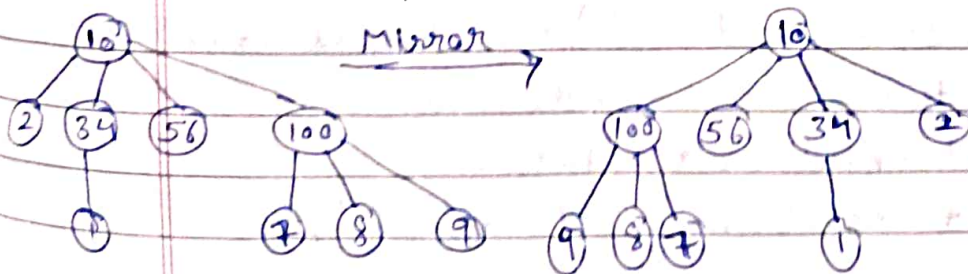 10 Mirror 10
2 34 56 100 100 56 34 2
1 7 8 9 9 8 7 1